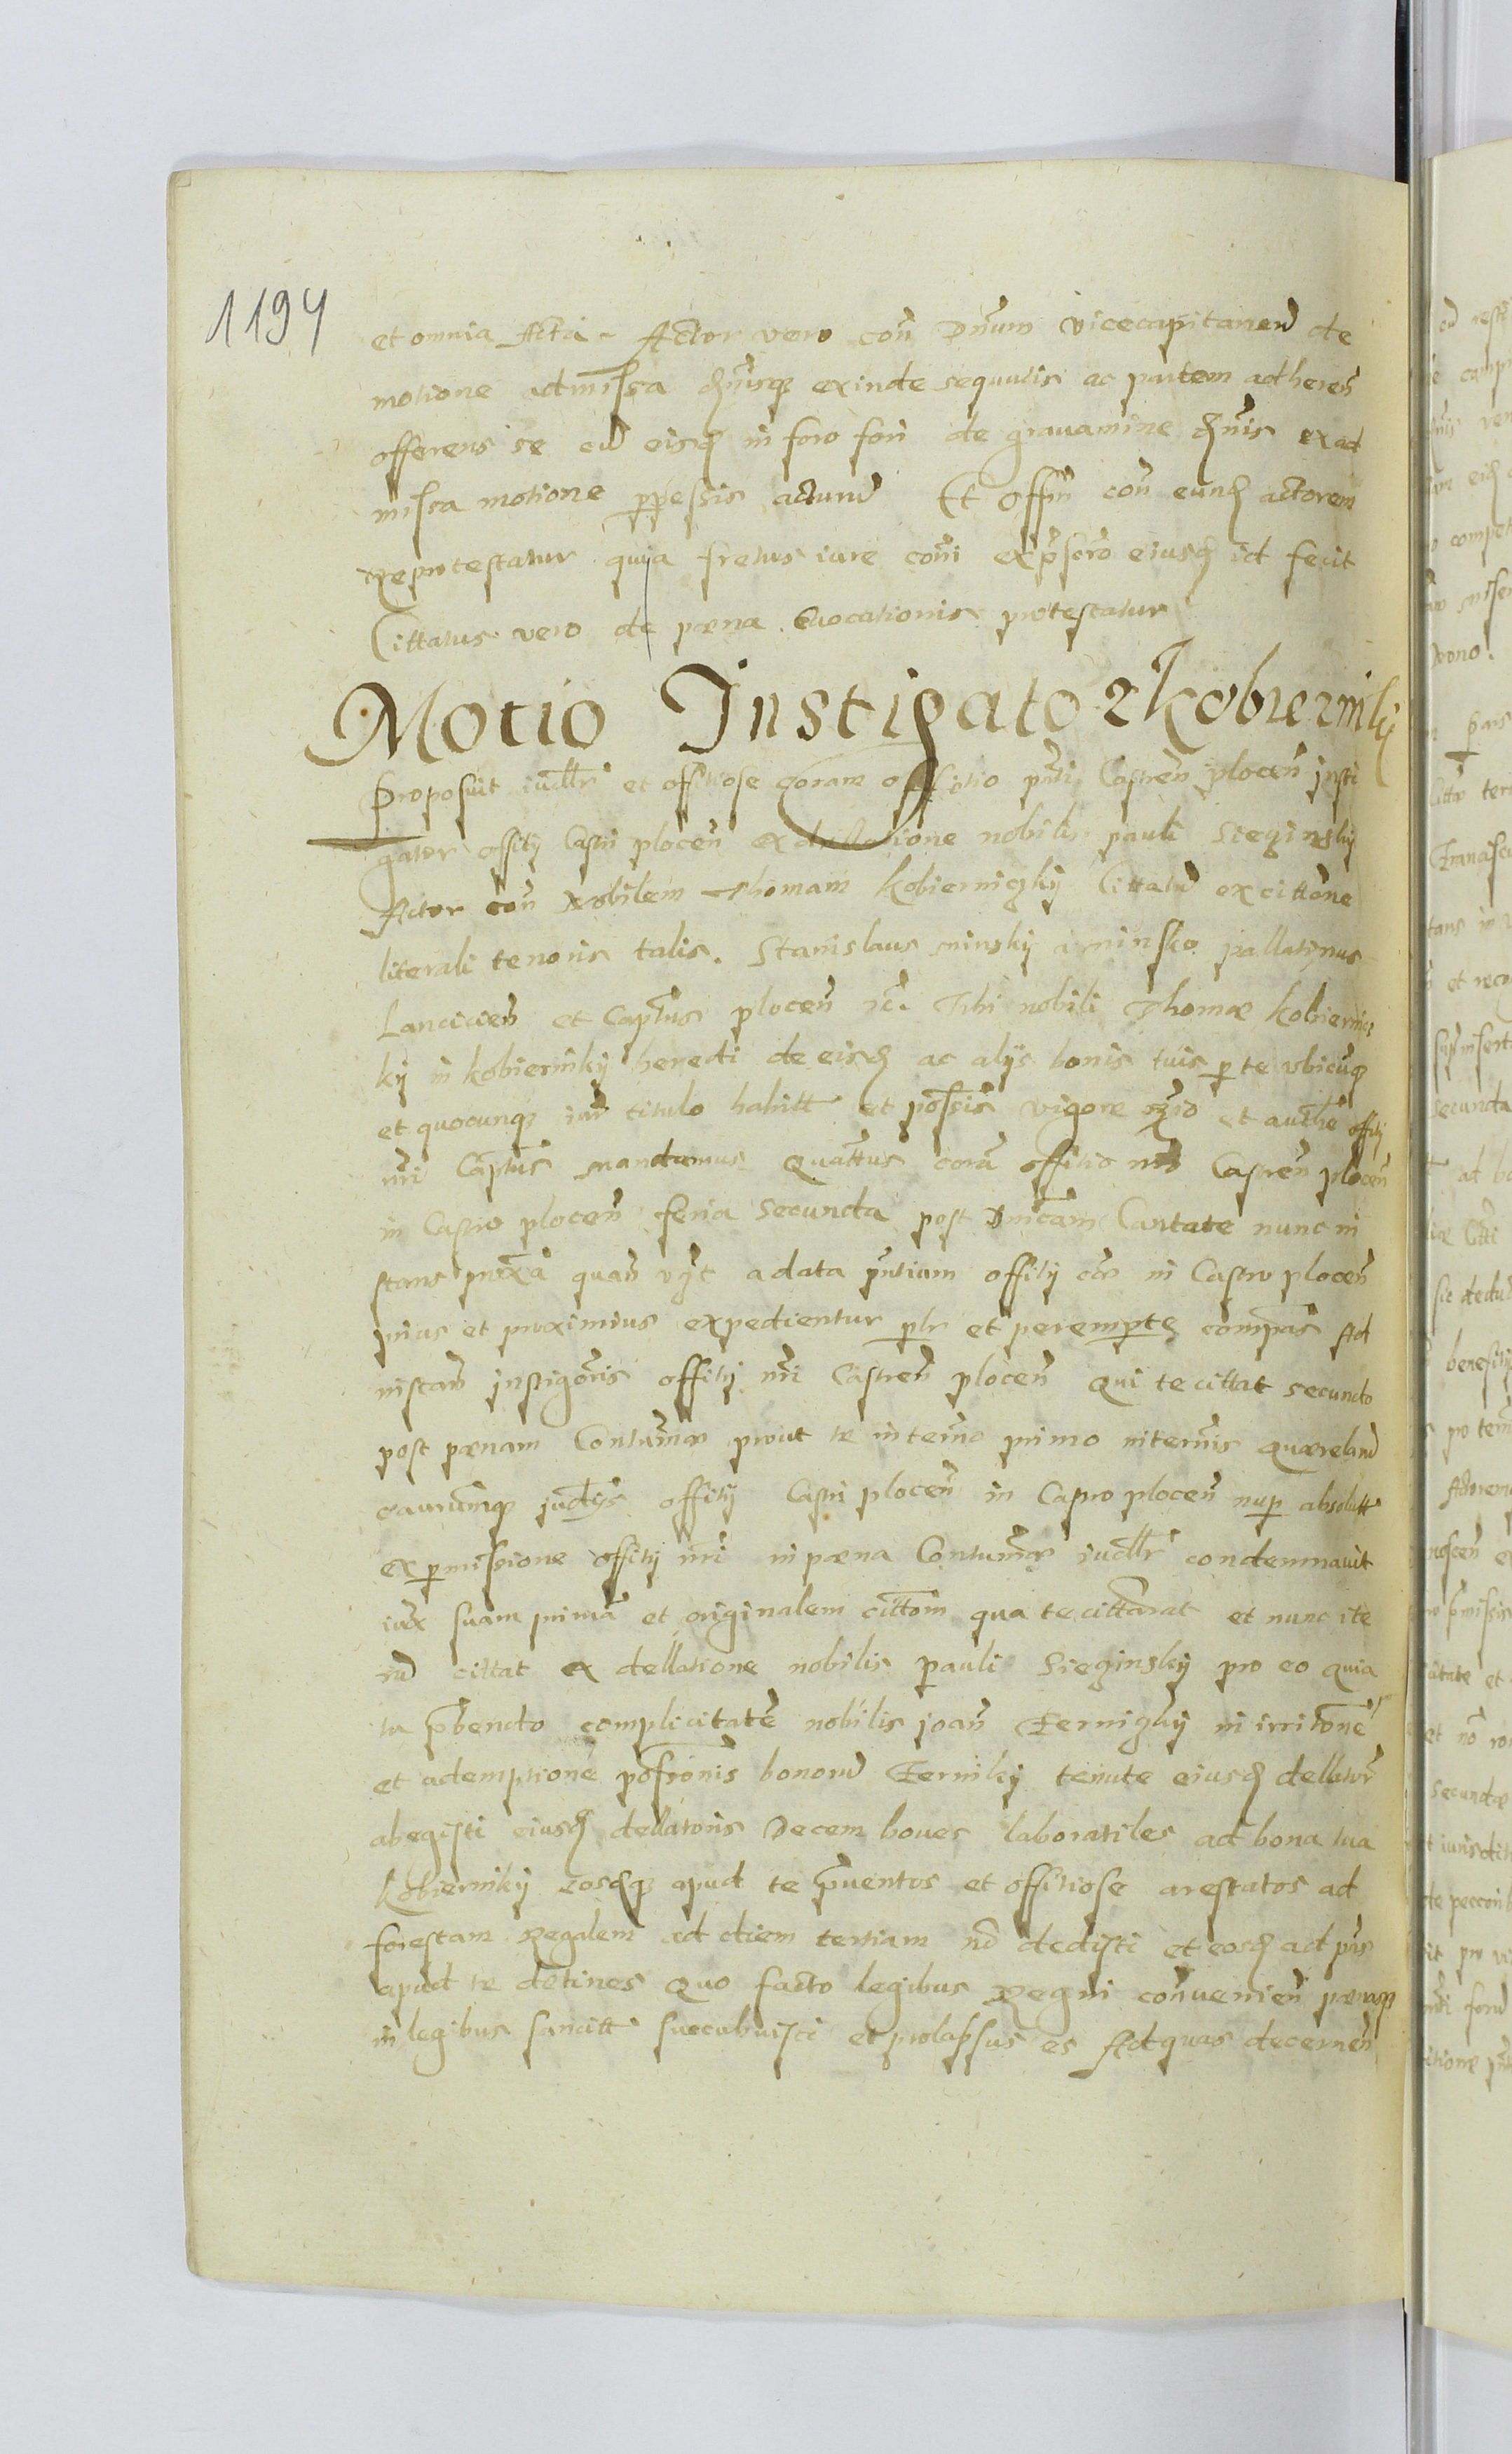 1194
et omnia Acta - Actor vero con̄ Dn̄um vicecapitaneū de
motione admissa dn̄isq̨ exinde sequutis ac partem adheren̄
offerens se cū eisd̨ in foro fori de gravamine dn̄is ex ad
missa motione ꝑpessis acturū Et offīn con̄ eund̨ actorem
Reprotestatur quia fretus iure com̄i ex p̄scro eiusd̨ id fecit
Cittatus vero de pœna Evocationis protestatur
Motio Instigator Kobiernikij
Proposuit iudllr̄ et offitiose coram offitio pn̄ti Castren̄ plocen̄ insti
gator offitij Castri plocen̄ ex dellatione nobilis pauli Sieginskij
Actor con̄ Nobilem Thomam Kobierniczkij Cittatū ex cittōne
literali tenoris talis. Stanislaus minskij a minsko pallatinus
Lancicien̄ et Capt̄us plocen̄ rc̄. Tibi nobili Thomæ Kobiernicz
kij in Kobiernikij heredi de eisd̨ ac alijs bonis tuis ꝑ te ubicūq̨
et quocunq̨ iur̄ titulo habitt̄ et possis̄ vigore Regīo et auth̄e offitij
nr̄i Capt̄us mandamus quatt̄us corā offitio nr̄o Castren̄ plocen̄
in Castro plocen̄ feria secunda post Dn̄icam Cantate nunc in
stans prox̄a quan̄ vz̄t a data pn̄tium offitij c̄ār in Castro plocen̄
prius et proximius expedientur ꝑlr et perempte compās Ad
instan̄ instigōris offitij nr̄i Castren̄ plocen̄ qui te cittat secundo
post pœnam Contum̄æ prout te in ter̄no primo in ter̄nis quærelarū
caurumq̨ judijs offitij Castri plocen̄ in Castro plocen̄ nuꝑ absolutt̄
ex ꝑmissione offitij nr̄i in pœna Contum̄æ iudllr̄ condemnavit
iux̄ suam primā et originalem citt̄om qua te citt̄arat et nunc ite
rū cittat ex dellatione nobilis Pauli Sieginskij pro eo quia
tu p̄bendo complicitatē nobilis joan̄ Czerniczkij in irritōnē
et ademptionē possiōnis bonorū Czernikij tenute eiusd̨ dellator̄
abegisti eiusd̨ dellatoris Decem boves laboratiles ad bona tua
Kobiernikij eosdq̨ apud te p̄ventos et offitiose arestatos ad
forestam Regalem ad diem tertiam nō dedisti et eosd̨ ad pn̄s
apud te detines quo facto legibus Regni convenien̄ pœnasq̨
in legibus sancitt̄ succubuisti et prolapsus es Ad quas decernen̄